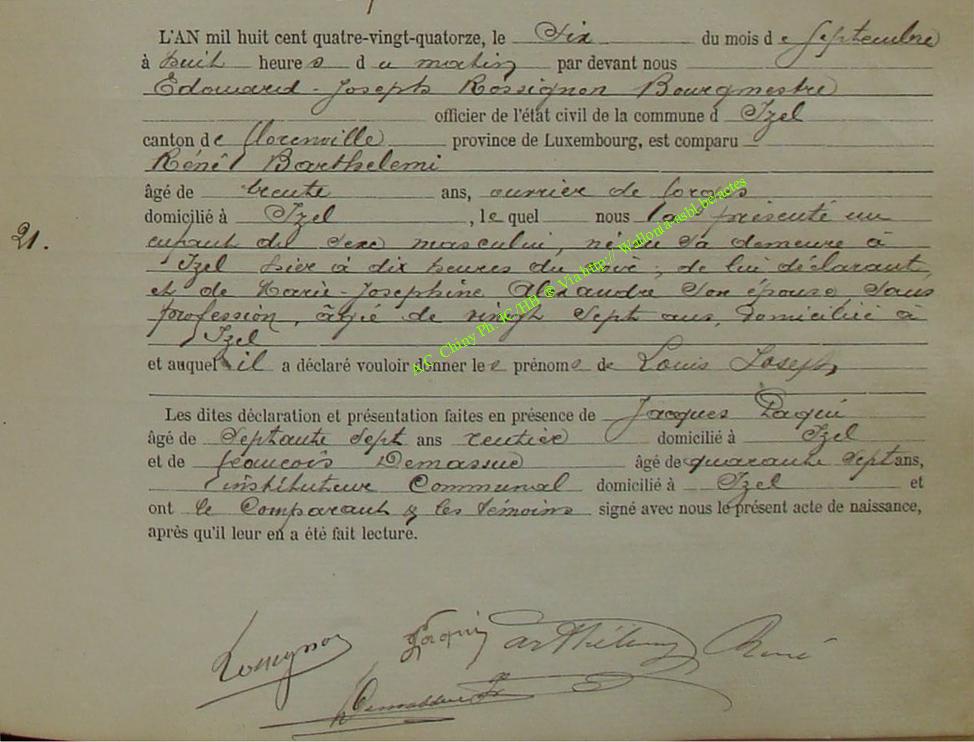 L'AN mil huit cent quatre-vingt-quatorze, le Six du mois de Septembre
à huit heures du matin par devant nous
Edouard-Joseph Rossignon Bourgmestre
officier de l'état civil de la commune d Izel
canton de Florenville province de Luxembourg, est comparu
René Barthelemi
âgé de trente ans, ouvrier de forges
domicilié à Izel, lequel nous a présenté un
enfant du sexe masculin, né en sa demeure à
Izel hier à dix heures du soir, de lui déclarant,
et de Marie-Joséphine Alexandre son épouse sans
profession, âgée de vingt sept ans, domiciliée à
Izel
et auquel il a déclaré vouloir donner les prénoms de Louis Joseph
Les dites déclaration et présentation faites en présence de Jacques Paqui
âgé de Septante sept ans rentier domicilié à Izel
et de françois Demasue âgé de quarante sept ans,
instituteur Communal domicilié à Izel et
ont le Comparant & les témoins signé avec nous le présent acte de naissance,
après qu'il leur en a été fait lecture.
21.
A.C. Chiny Ph. JC/HH ® Via http:// Wallonia-asbl-be/actes
Rossignon Paquis Barthélemy René